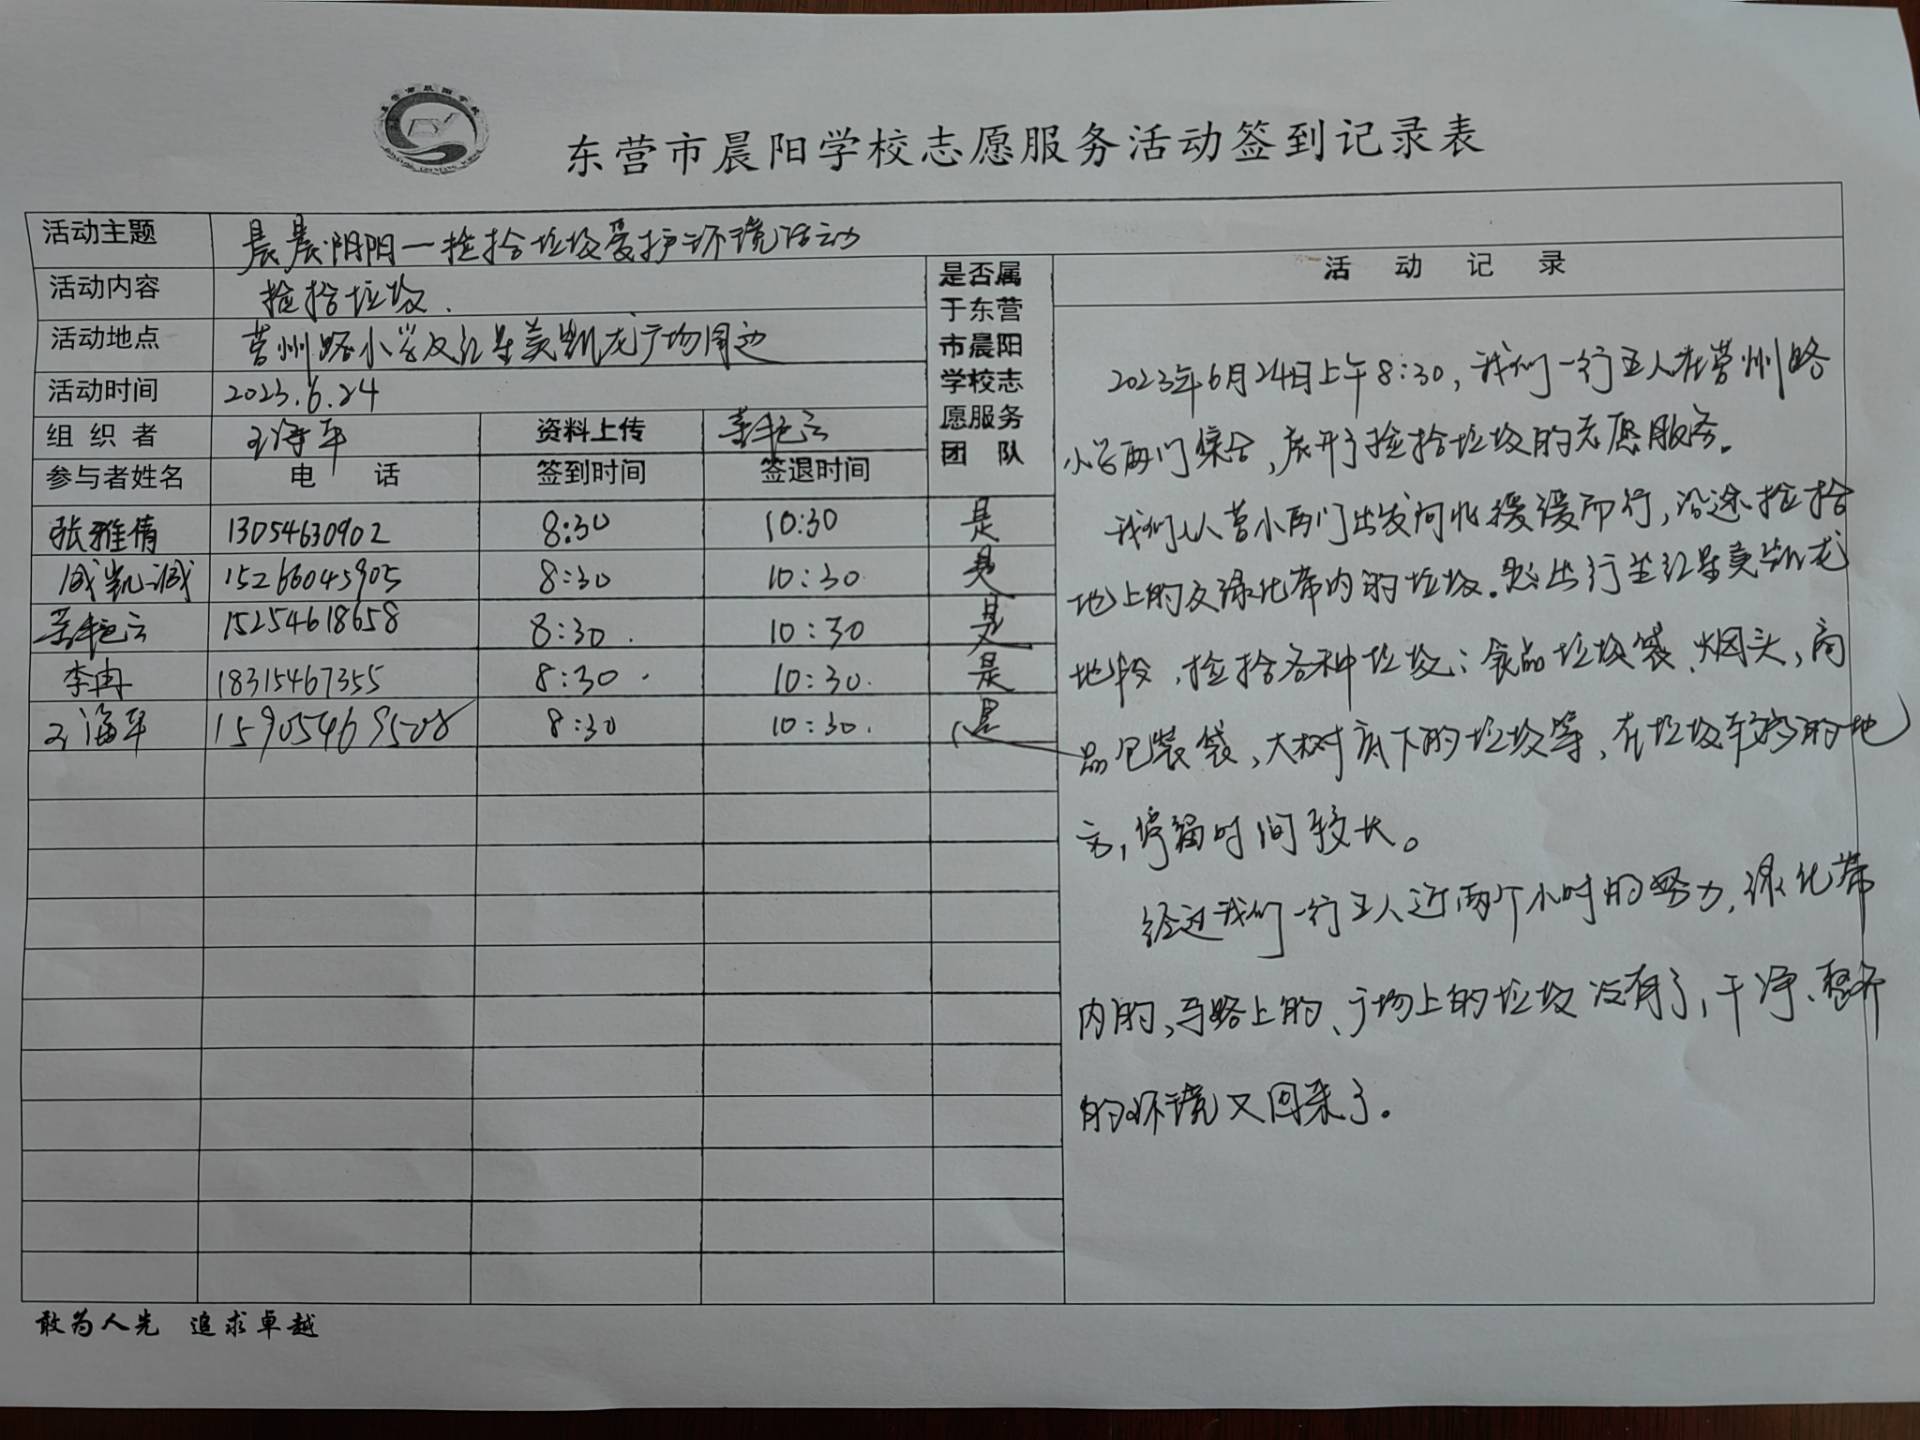 东营市晨阳学校志愿服务活动签到记录表
活动主题 晨晨阳阳一捡拾垃圾爱护环境活动
活动内容 捡拾垃圾.
活动地点 营州路小学及红星美凯龙广场周边
活动时间 2023.6.24
组织者 王海平 资料上传
参与者姓名 电话 签到时间 签退时间
是否属
于东营
市晨阳
学校志
愿服务
团队
张雅倩 13054630902 8:30 10:30 是
15266045905 8:30 10:30 是
15254618658 8:30. 10:30 是
李冉 18315467355 8:30. 10:30. 是
王海平 15905469508 8:30 10:30. 是
活动记录
2023年6月24日上午8:30,我们一行五人在营州路
小学西门集合,展开了捡拾垃圾的志愿服务。
我们从营小西门出发向北缓缓而行,沿途捡拾
地上的及绿化带内的垃圾.步行至红星美凯龙
地段,捡拾各种垃圾:食品垃圾袋、烟头,商
品包装袋,大树底下的垃圾等,在垃圾较多的地
方,停留时间较长。
经过我们一行五人近两个小时的努力,绿化带
内的,马路上的、广场上的垃圾没有了,干净、整齐
的环境又回来了。
敢为人先 追求卓越